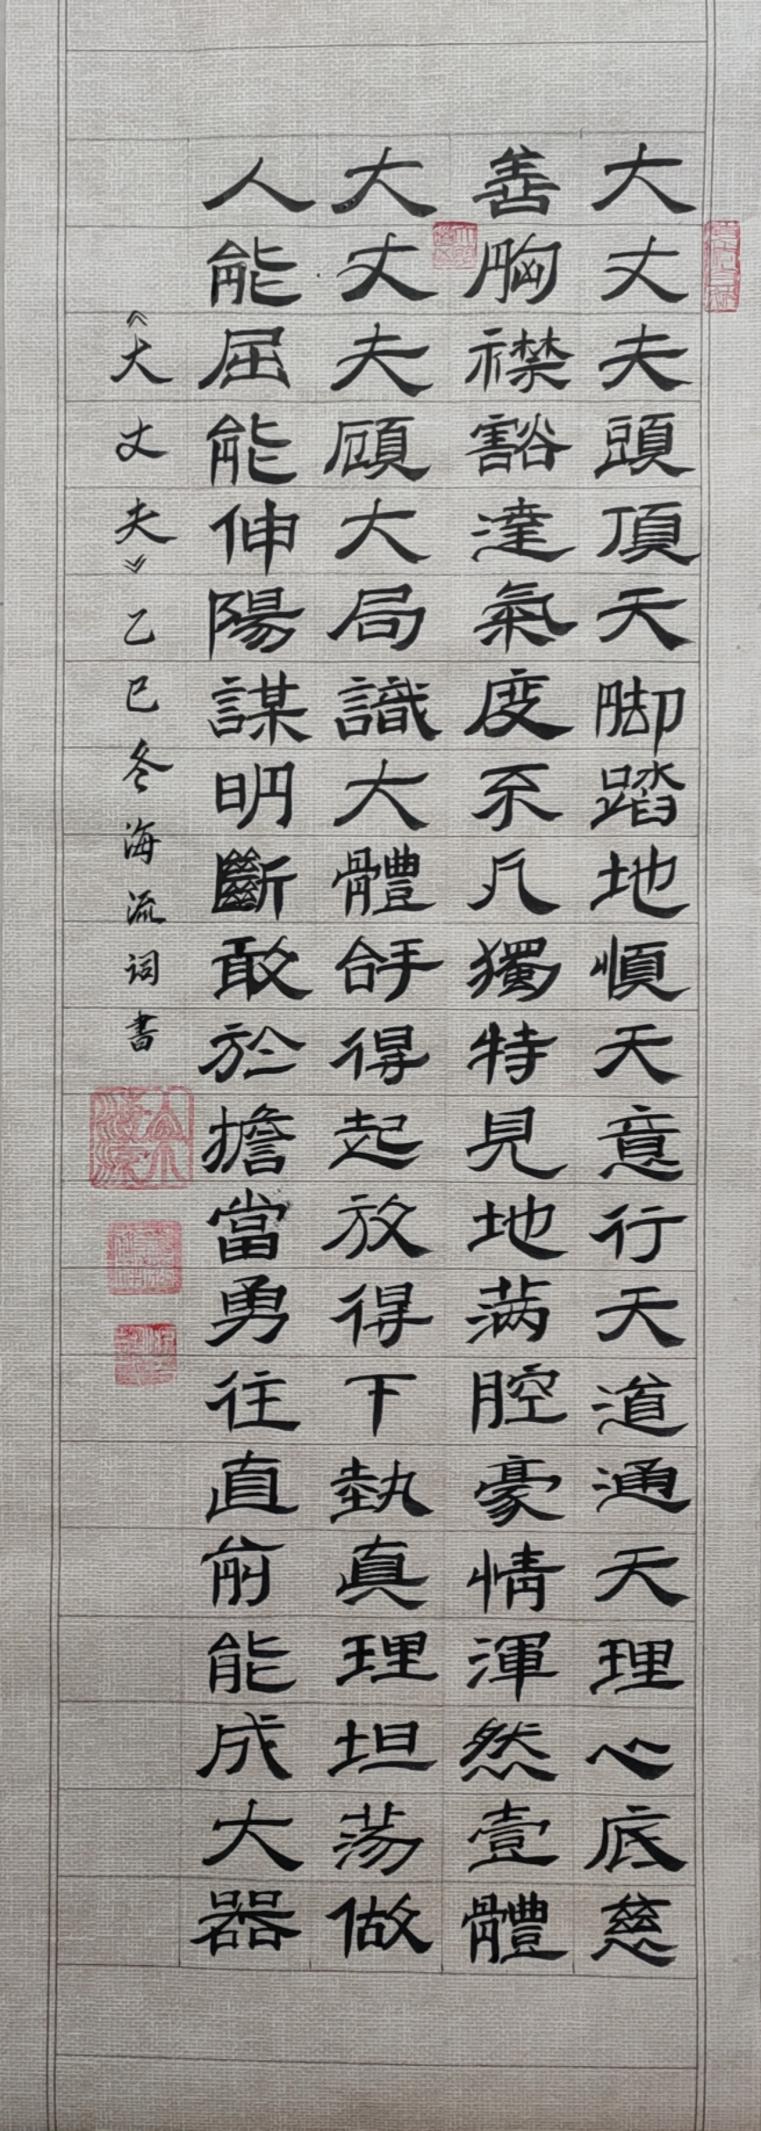 大丈夫頭頂天脚踏地順天意行天道通天理心底慈
善胸襟豁達氣度不凡獨特見地满腔豪情渾然壹體
大丈夫顧大局識大體得起放得下執真理坦荡做
人能屈能伸陽謀明斷敢於擔當勇往直前能成大器
《大丈夫》乙巳冬海流词書